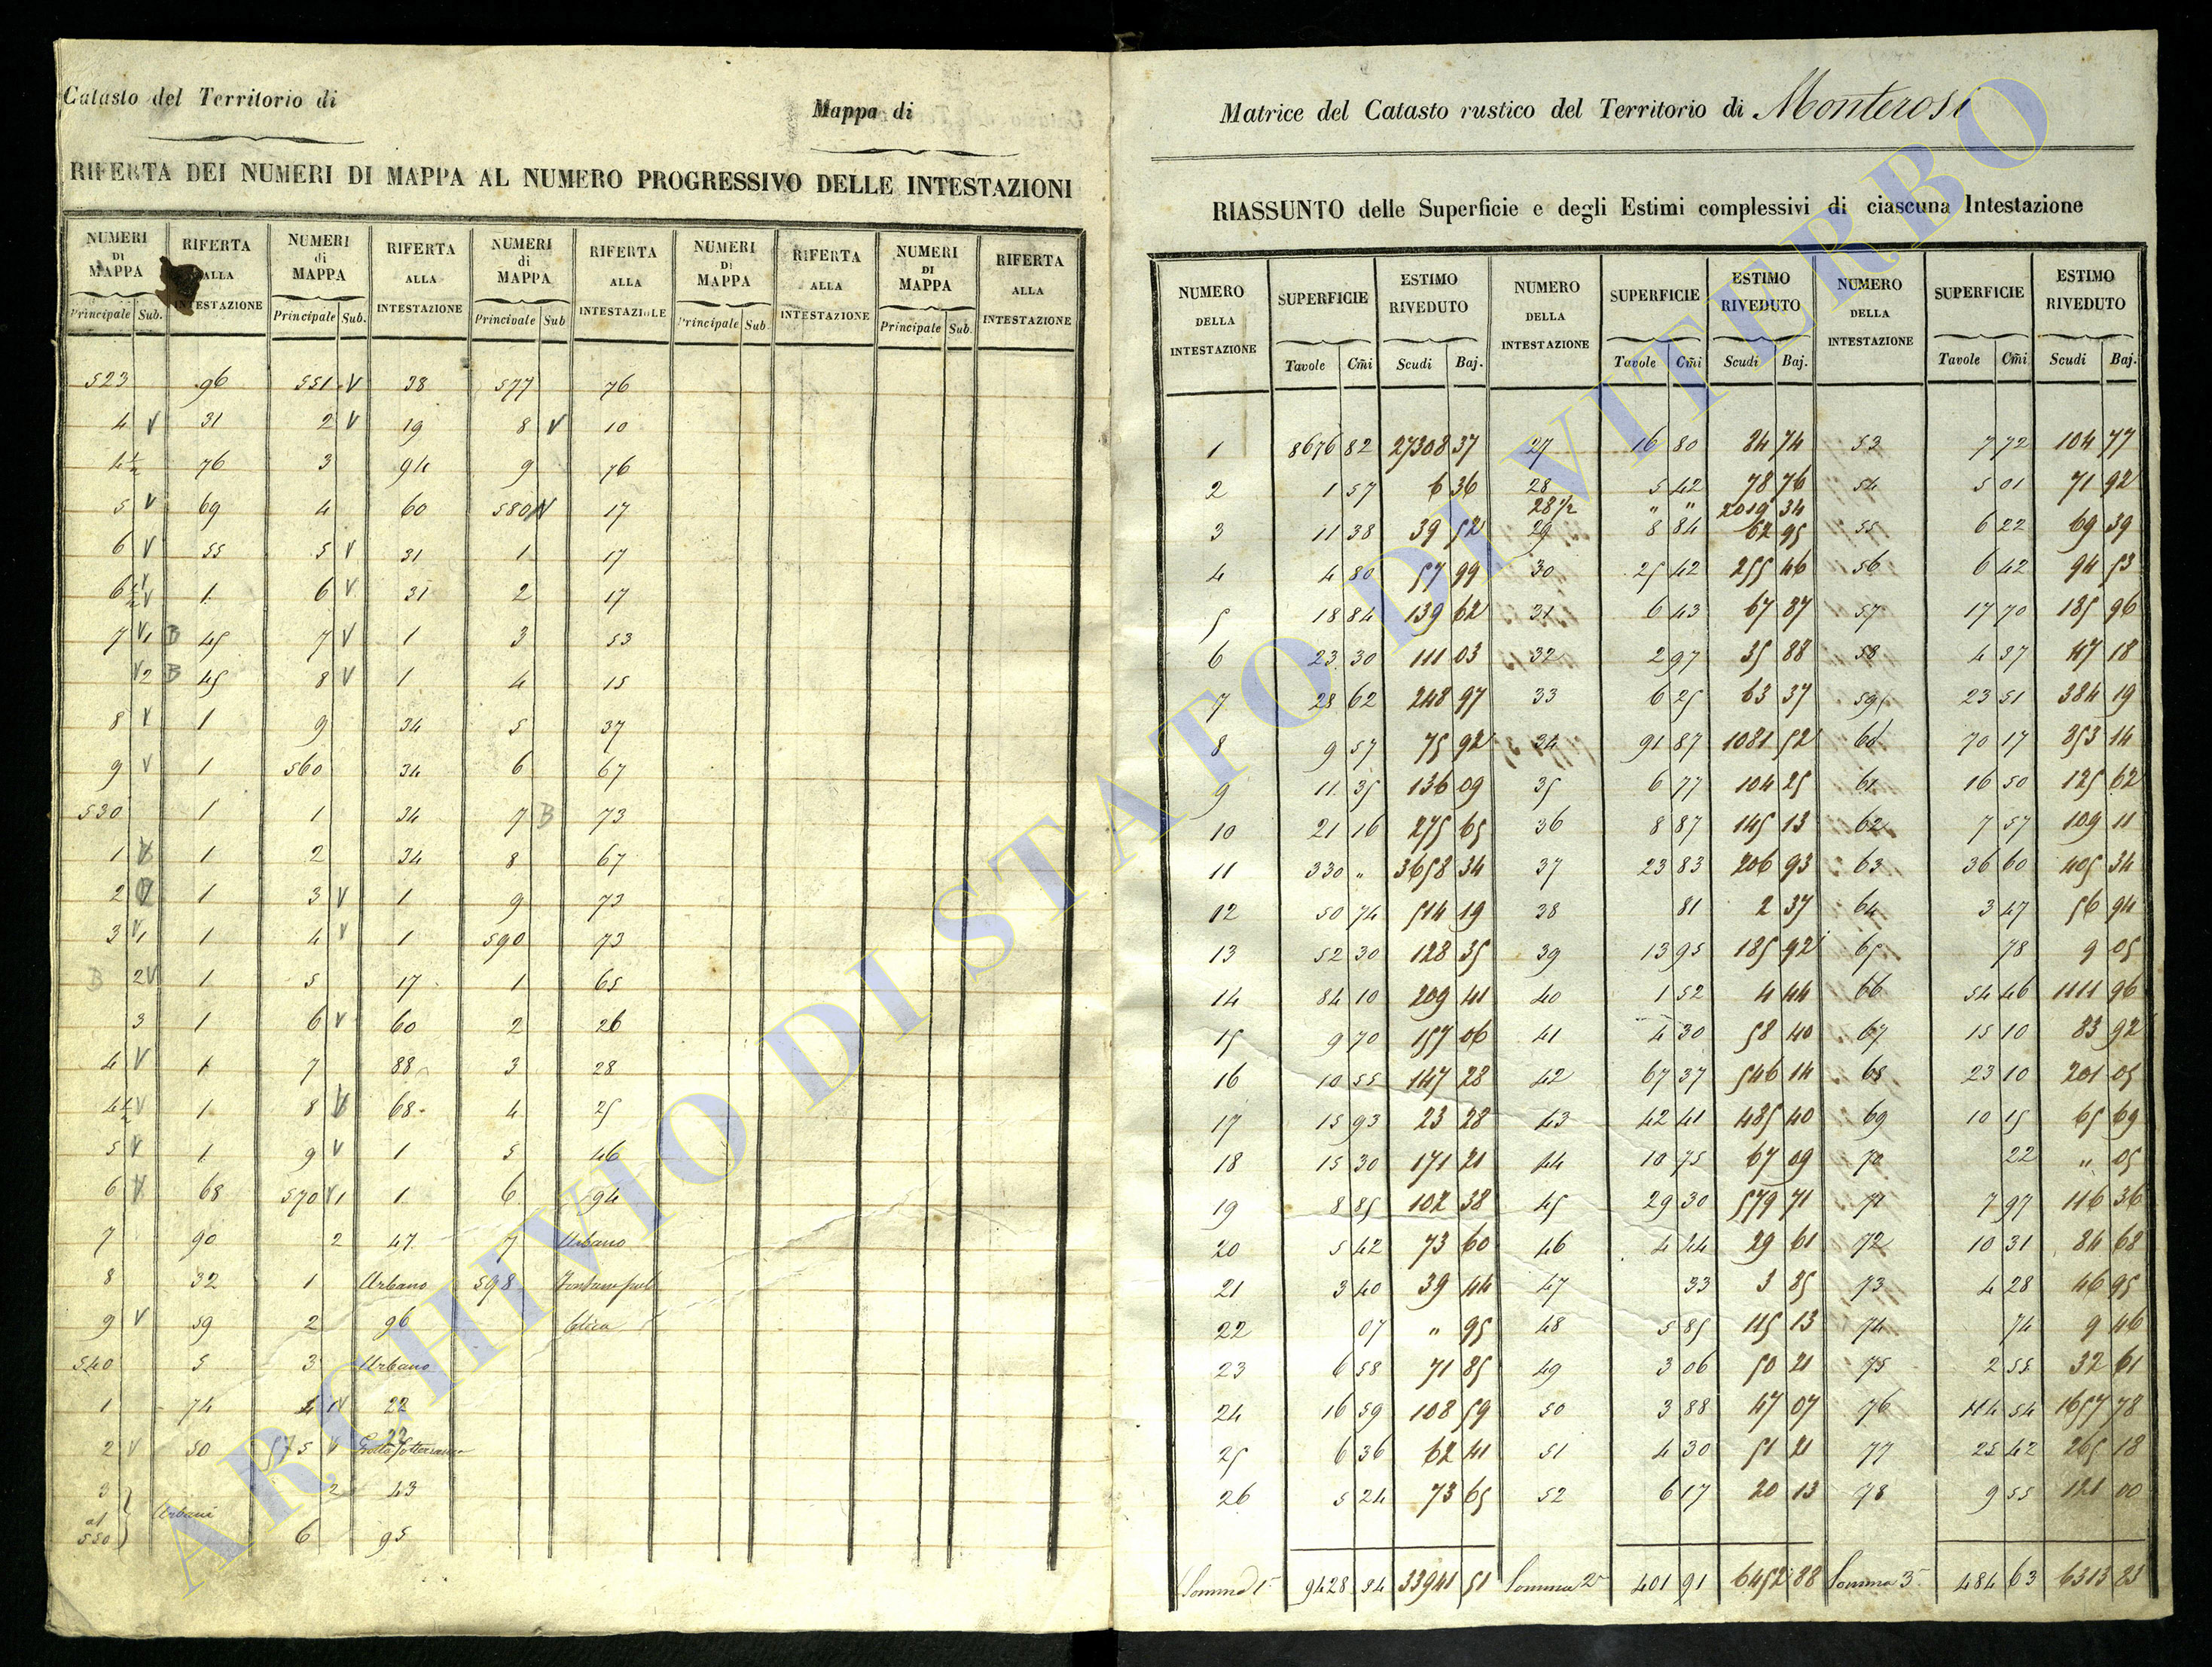 Catasto del Territorio di
Mappa di
RIFERTA DEI NUMERI DI MAPPA AL NUMERO PROGRESSIVO DELLE INTESTAZIONI
NUMERI DI MAPPA RIFERTA ALLA INTESTAZIONE NUMERI di MAPPA RIFERTA ALLA INTESTAZIONE NUMERI di MAPPA RIFERTA ALLA INTESTAZIOLE NUMERI DI MAPPA RIFERTA ALLA INTESTAZIONE NUMERI DI MAPPA RIFERTA ALLA INTESTAZIONE
Principale Sub. Principale Sub. Principale Sub Principale Sub. Principale Sub.
523 96 551 V 38 577 76
4 V 31 2 V 19 8 V 10
4½ 76 3 94 9 76
5 V 69 4 60 580 V 17
6 V 55 5 V 31 1 17
6½ V 1 6 V 31 2 17
7 V1 B 45 7 V 1 3 53
V2 B 45 8 V 1 4 15
8 V 1 9 34 5 37
9 V 1 560 34 6 67
530 1 1 34 7 B 73
1 V 1 2 34 8 67
2 V 1 3 V 1 9 73
3 V1 1 4 V 1 590 73
B 2V 1 5 17 1 65
3 1 6 V 60 2 26
4 V 1 7 88 3 28
4½ V 1 8 V 68 4 25
5 V 1 9 V 1 5 46
6 V 68 570 V1 1 6 94
7 90 2 47 7 Urbano
8 32 1 Urbano 598 Fontana pub
9 V 59 2 96 blica
540 5 3 Urbano
1 74 4 1V 22
2 V 50 575 V 22 Grotta Sotterranea
3 2 43
al Urbani
550 6 95
Matrice del Catasto rustico del Territorio di Monterosi
RIASSUNTO delle Superficie e degli Estimi complessivi di ciascuna Intestazione
NUMERO DELLA INTESTAZIONE SUPERFICIE ESTIMO RIVEDUTO NUMERO DELLA INTESTAZIONE SUPERFICIE ESTIMO RIVEDUTO NUMERO DELLA INTESTAZIONE SUPERFICIE ESTIMO RIVEDUTO
Tavole Cm̃i Scudi Baj. Tavole Cm̃i Scudi Baj. Tavole Cm̃i Scudi Baj.
1 8676 82 27308 37 27 16 80 84 74 53 7 72 104 77
2 1 57 6 36 28 5 42 78 76 54 5 01 71 92
28½ " " 2019 34
3 11 38 39 52 29 8 84 62 95 55 6 22 69 39
4 4 80 57 99 30 25 42 255 46 56 6 42 94 53
5 18 84 139 62 31 6 43 67 87 57 17 70 185 96
6 23 30 111 03 32 2 97 35 88 58 4 37 47 18
7 28 62 248 97 33 6 25 63 37 59 23 51 384 19
8 9 57 75 92 34 91 87 1081 52 60 70 17 353 14
9 11 35 136 09 35 6 77 104 25 61 16 50 125 62
10 21 16 275 65 36 8 87 145 13 62 7 57 109 11
11 330 " 3658 34 37 23 83 206 93 63 36 60 405 34
12 50 74 514 19 38 81 2 37 64 3 47 56 94
13 52 30 128 35 39 13 95 185 92 65 78 9 05
14 84 10 209 41 40 1 52 4 44 66 54 46 1111 96
15 9 70 157 06 41 4 30 58 40 67 15 10 83 92
16 10 55 147 28 42 67 37 546 14 68 23 10 201 05
17 15 93 23 28 43 42 41 485 40 69 10 15 65 69
18 15 30 171 21 44 10 75 67 09 70 22 " 05
19 8 85 102 38 45 29 30 579 71 71 7 97 116 36
20 5 42 73 60 46 4 44 29 61 72 10 31 84 68
21 3 40 39 44 47 33 3 85 73 4 28 46 95
22 07 " 95 48 5 85 115 13 74 74 9 46
23 6 58 71 85 49 3 06 50 21 75 2 55 32 61
24 16 59 108 59 50 3 88 47 07 76 114 54 1657 78
25 6 36 62 41 51 4 30 51 21 77 25 42 265 18
26 5 24 73 65 52 6 17 20 13 78 9 55 121 00
Somma 1ª 9428 34 33941 51 Somma 2ª 401 91 6452 88 Somma 3ª 484 63 6313 23
ARCHIVIO DI STATO DI VITERBO